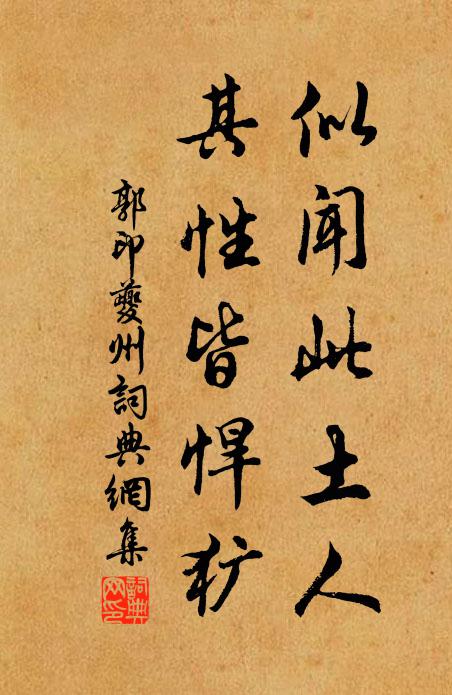 似闻此土人
其性皆悍犷
郭印夔州詞典網集
詞典网印